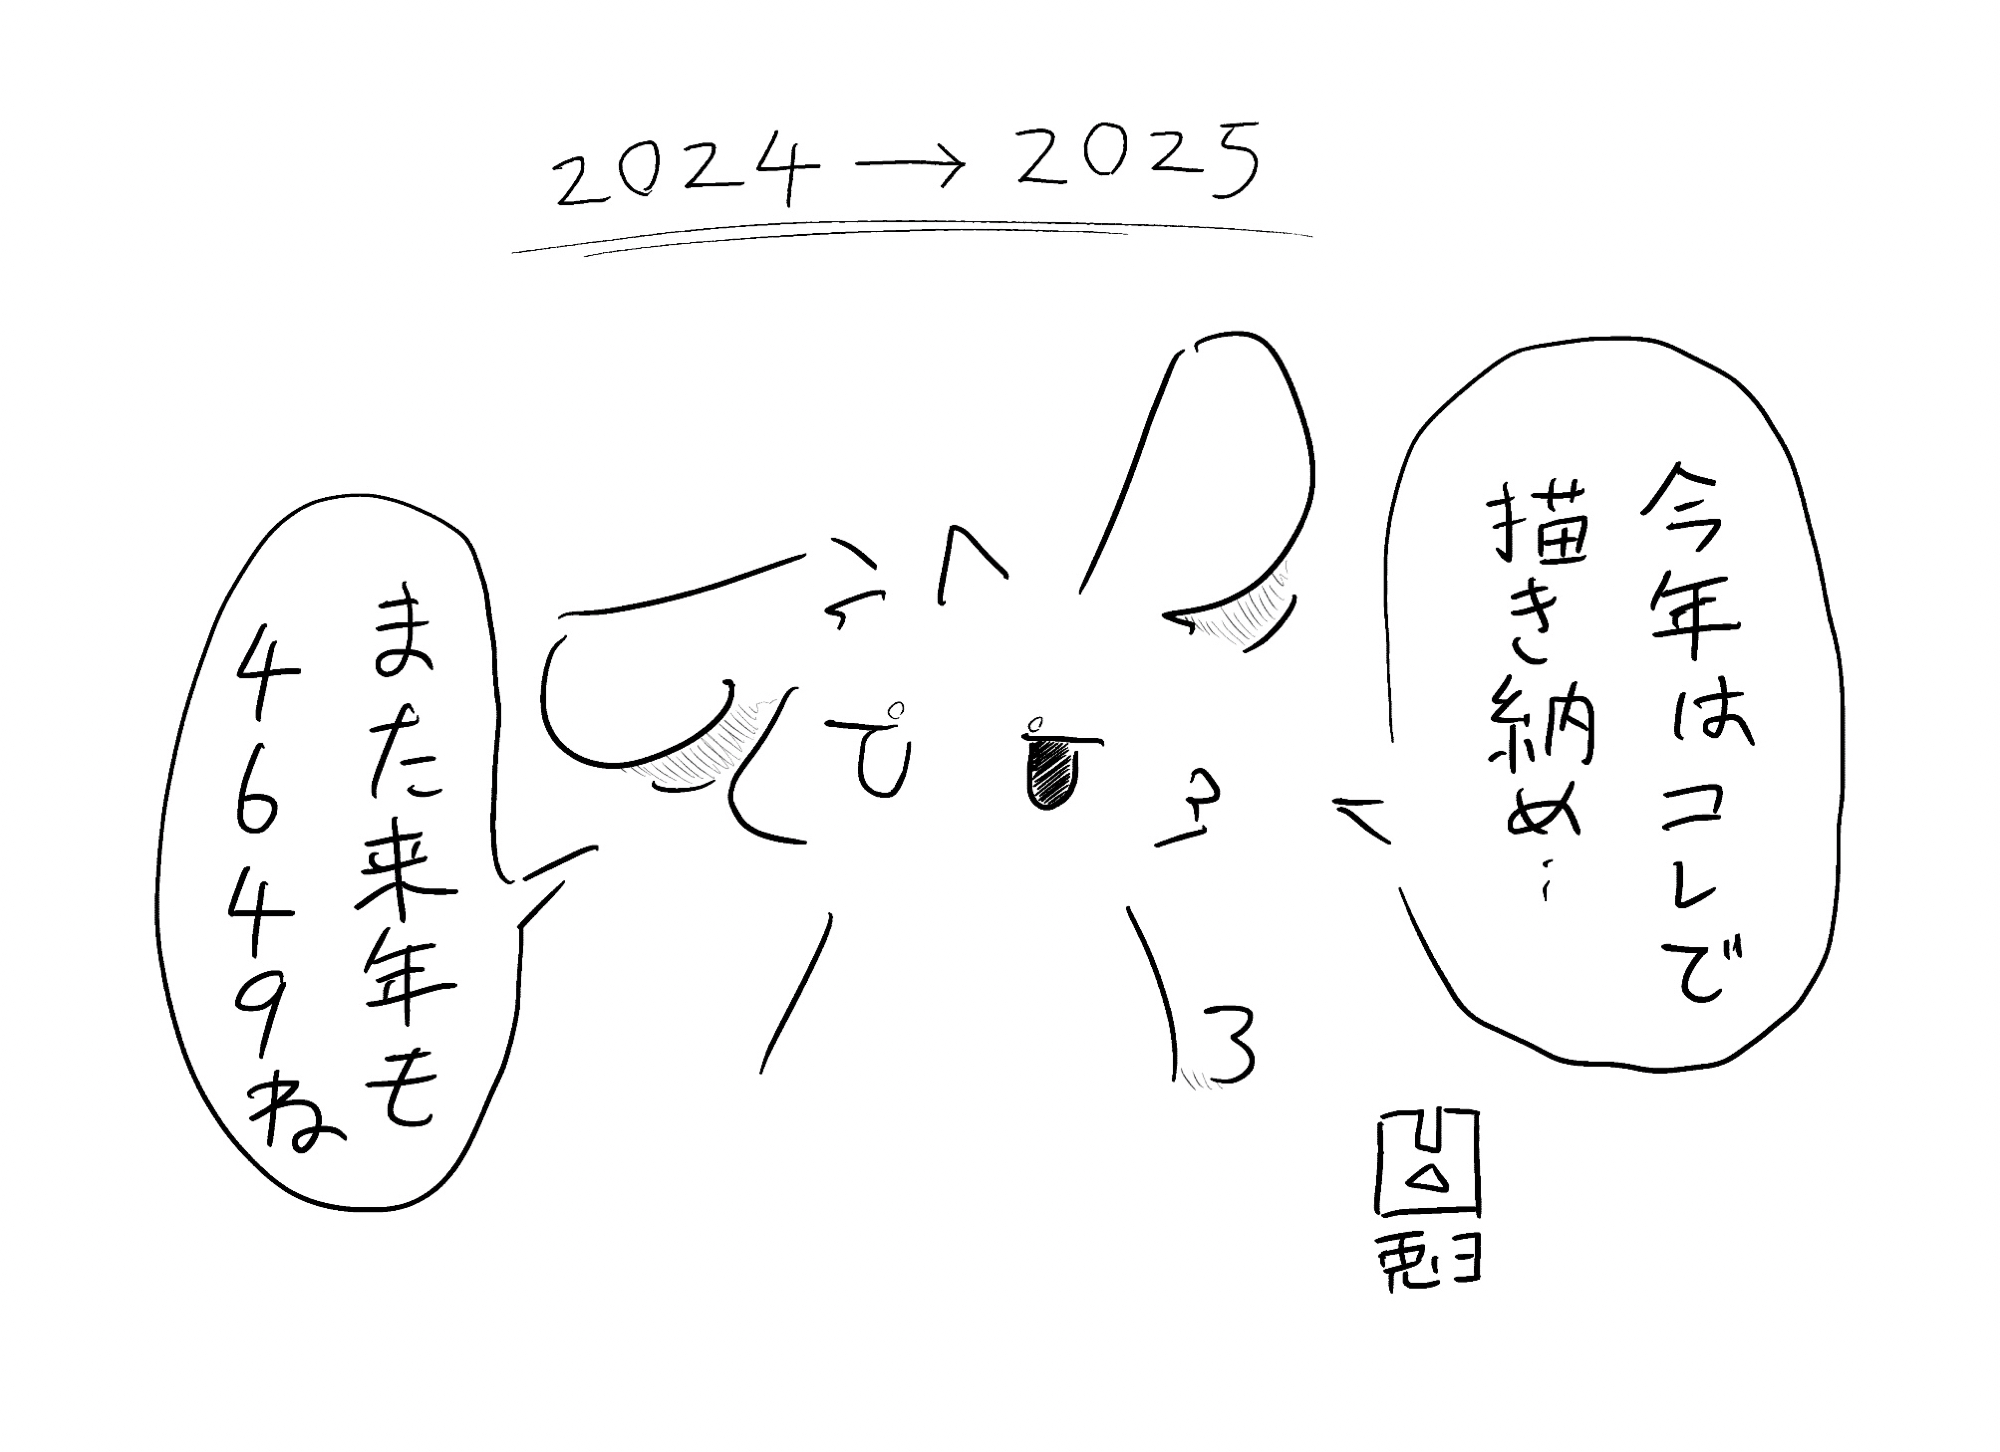 2024→2025
今年はコレで
描き納め…
また来年も
4649ね